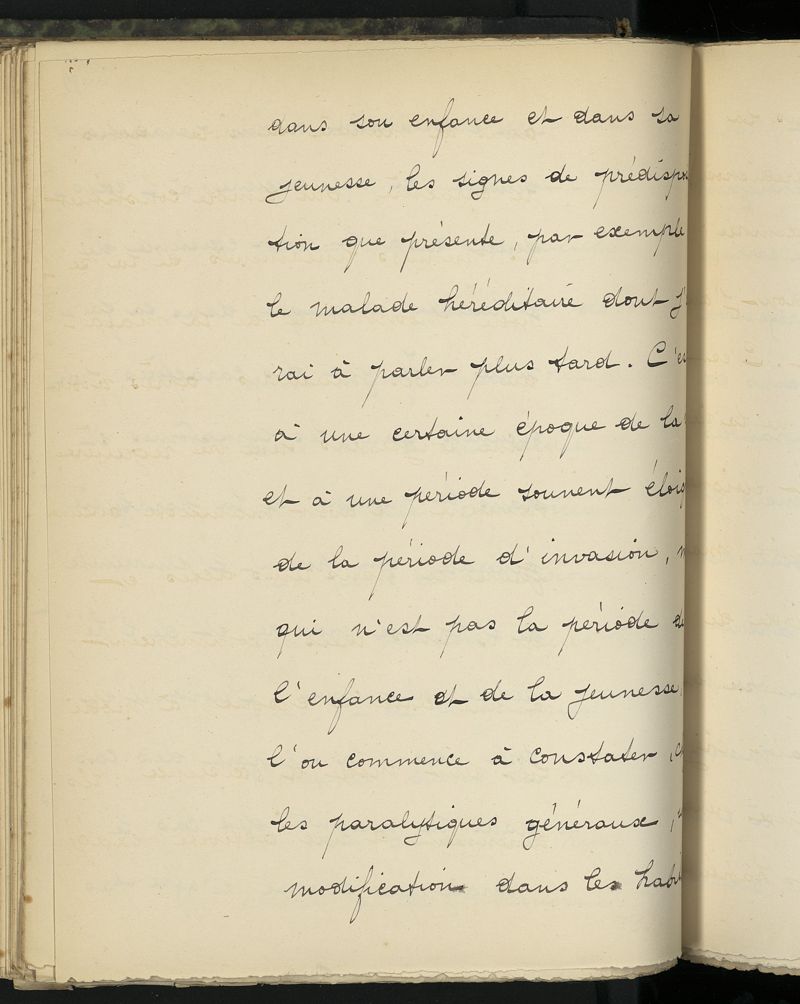 dans son enfance et dans sa
jeunesse, les signes de prédispo
tion que présente, par exemple
le malade héréditaire dont j'
rai à parler plus tard. C'es
à une certaine époque de la
et à une période souvent éloig
de la période d'invasion,
qui n'est pas la période de
l'enfance et de la jeunesse
l'on commence à constater,
les paralytiques généraux,
modification dans les habi